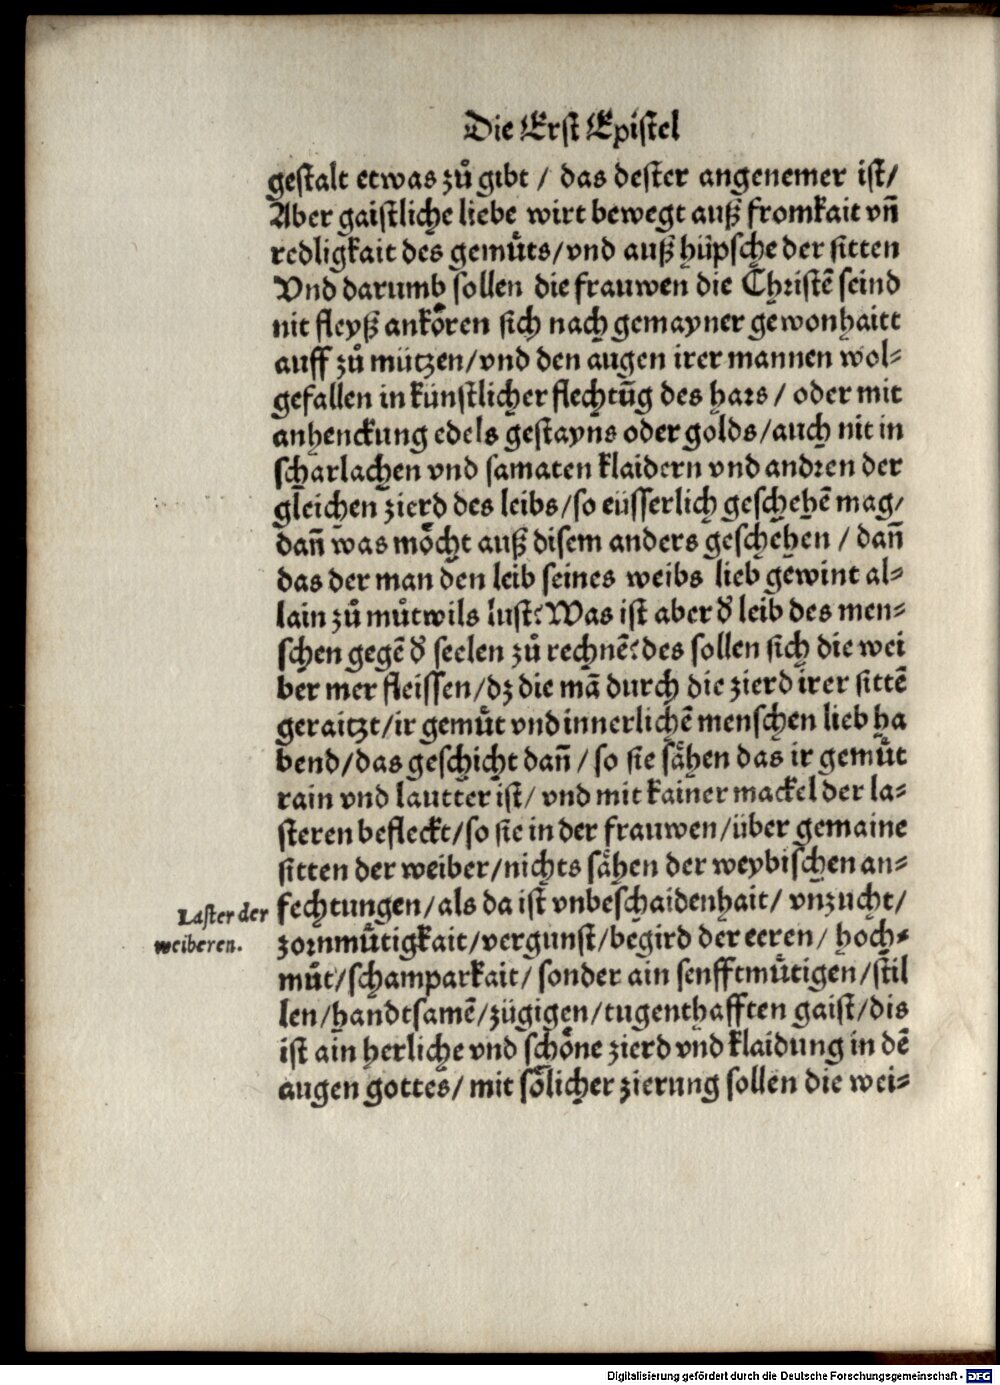 Die Erst Epistel
gestalt etwas zů gibt / das dester angenemer ist/
Aber gaistliche liebe wirt bewegt auß fromkait vñ
redligkait des gemüts/vnd auß hüpsche der sitten
Vnd darumb sollen die frauwen die Christē seind
nit fleyß ankören sich nach gemayner gewonhaitt
auff zů mützen/vnd den augen irer mannen wol⸗
gefallen in künstlicher flechtūg des hars / oder mit
anhenckung edels gestayns oder golds/auch nit in
scharlachen vnd samaten klaidern vnd andren der
gleichen zierd des leibs/so eüsserlich geschehē mag/
dañ was möcht auß disem anders geschehen / dañ
das der man den leib seines weibs lieb gewint al⸗
lain zů můtwils lust? Was ist aber d̕ leib des men⸗
schen gegē d̕ seelen zů rechnē? des sollen sich die wei
ber mer fleissen/dz die mā durch die zierd irer sittē
geraitzt/ir gemüt vnd innerlichē menschen lieb ha
bend/das geschicht dañ / so sie sähen das ir gemüt
rain vnd lautter ist/ vnd mit kainer mackel der la⸗
steren befleckt/so sie in der frauwen/über gemaine
sitten der weiber/nichts sähen der weybischen an⸗
Laster der
weiberen.
fechtungen/als da ist vnbeschaidenhait/ vnzucht/
zornmütigkait/vergunst/begird der eeren/ hoch⸗
müt/schamparkait/ sonder ain senfftmütigen/stil
len/handtsamē/zügigen/tugenthafften gaist/dis
ist ain herliche vnd schöne zierd vnd klaidung in dē
augen gottes/ mit sölicher zierung sollen die wei⸗
Digitalisierung gefördert durch die Deutsche Forschungsgemeinschaft - DFG